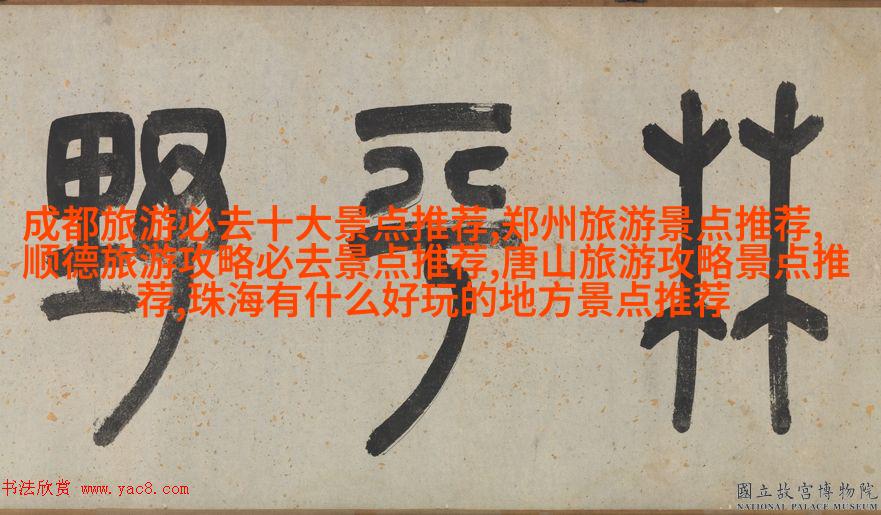 野平林
成都旅游必去十大景点推荐,郑州旅游景点推荐,
顺德旅游攻略必去景点推荐,唐山旅游攻略景点推
荐,珠海有什么好玩的地方景点推荐
书法欣赏 www.yac8.com
國立故宮博物院
NATIONAL PALACE MUSEUM